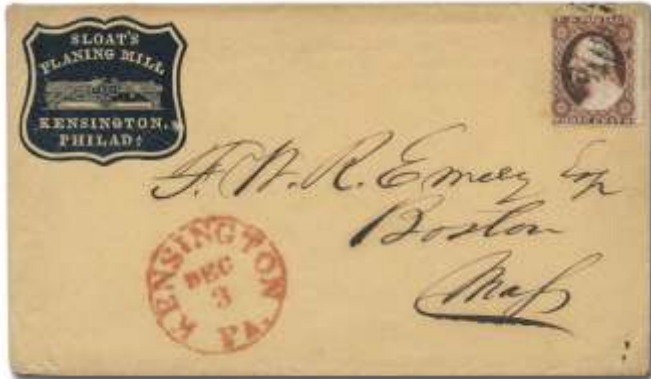 SLOAT'S
PLANING MILL
KENSINGTON,
PHILADA
THREE CENTS
F. W. R. Emery Esq
Boston
Mass
KENSINGTON
DEC
3
PA.